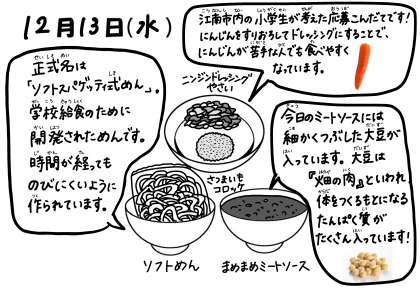 12月13日(水)
江南市内の小学生が考えた応募こんだてです!
にんじんをすりおろしてドレッシングにすることで、
にんじんが苦手な人でも食べやすく
なっています。
正式名は
「ソフトスパゲッティ式めん」。
学校給食のために
開発されためんです。
時間が経っても
のびにくいように
作られています。
ニンジンドレッシング
やさい
さつまいも
コロッケ
今日のミートソースには
細かくつぶした大豆が
入っています。大豆は
『畑の肉』といわれ、
体をつくるもとになる
たんぱく質が
たくさん入っています!
ソフトめん
まめまめミートソース